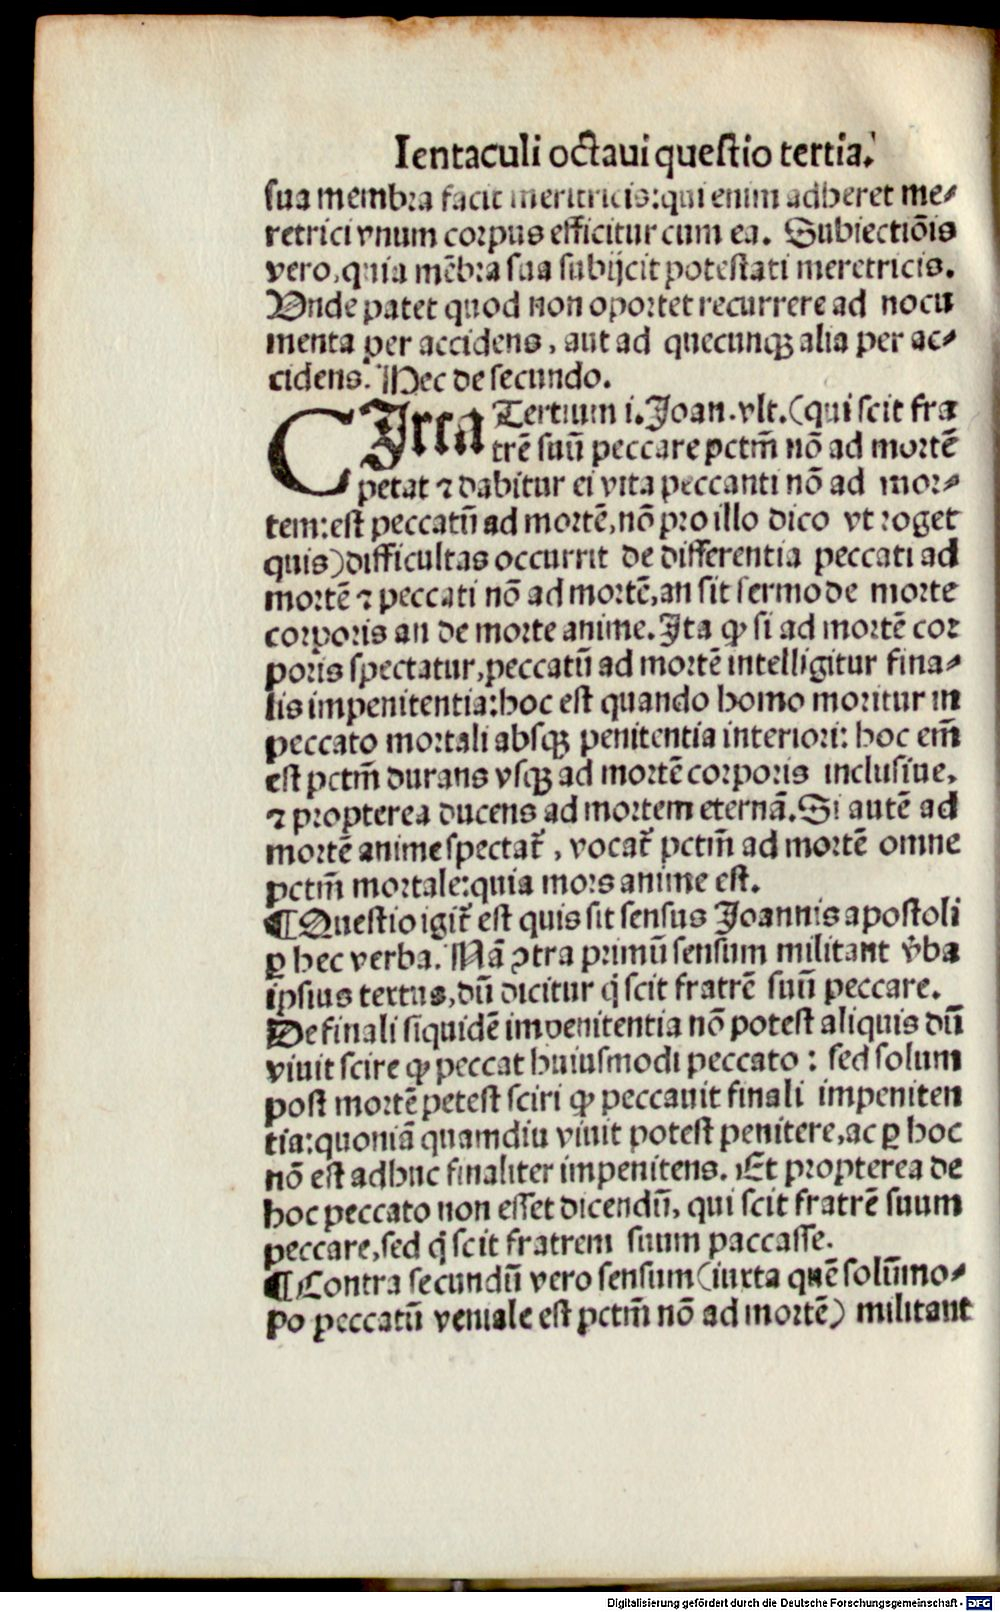 Ientaculi octaui questio tertia.
sua membra facit meritricis: qui enim adheret me⸗
retrici vnum corpus efficitur cum ea. Subiectiōis
vero, quia mēbra sua subijcit potestati meretricis.
Vnde patet quod non oportet recurrere ad nocu
menta per accidens, aut ad quecunqꝫ alia per ac⸗
cidens. Hec de secundo.
CIrca Tertium i. Joan. vlt. (qui scit fra
trē suū peccare pctm̄ nō ad mortē
petat ⁊ dabitur ei vita peccanti nō ad mor⸗
tem: est peccatū ad mortē, nō pro illo dico vt roget
quis) difficultas occurrit de differentia peccati ad
mortē ⁊ peccati nō ad mortē, an sit sermo de morte
corporis an de morte anime. Ita ꝙ si ad mortē cor
poris spectatur, peccatū ad mortē intelligitur fina⸗
lis impenitentia: hoc est quando homo moritur in
peccato mortali absqꝫ penitentia interiori: hoc em̄
est pctm̄ durans vsqꝫ ad mortē corporis inclusiue,
⁊ propterea ducens ad mortem eternā. Si autē ad
mortē anime spectat᷑, vocat᷑ pctm̄ ad mortē omne
pctm̄ mortale: quia mors anime est.
¶ Questio igit᷑ est quis sit sensus Joannis apostoli
ꝑ hec verba. Nā ꝯtra primū sensum militant v̄ba
ipsius textus, dū dicitur q̇ scit fratrē suū peccare.
De finali siquidē impenitentia nō potest aliquis dū
viuit scire ꝙ peccat huiusmodi peccato: sed solum
post mortē petest sciri ꝙ peccauit finali impeniten
tia: quoniā quamdiu viuit potest penitere, ac ꝑ hoc
nō est adhuc finaliter impenitens. Et propterea de
hoc peccato non esset dicendū, qui scit fratrē suum
peccare, sed q̇ scit fratrem suum paccasse.
¶ Contra secundū vero sensum (iuxta quē solūmo⸗
po peccatū veniale est pctm̄ nō ad mortē) militant
Digitalisierung gefördert durch die Deutsche Forschungsgemeinschaft - DFG